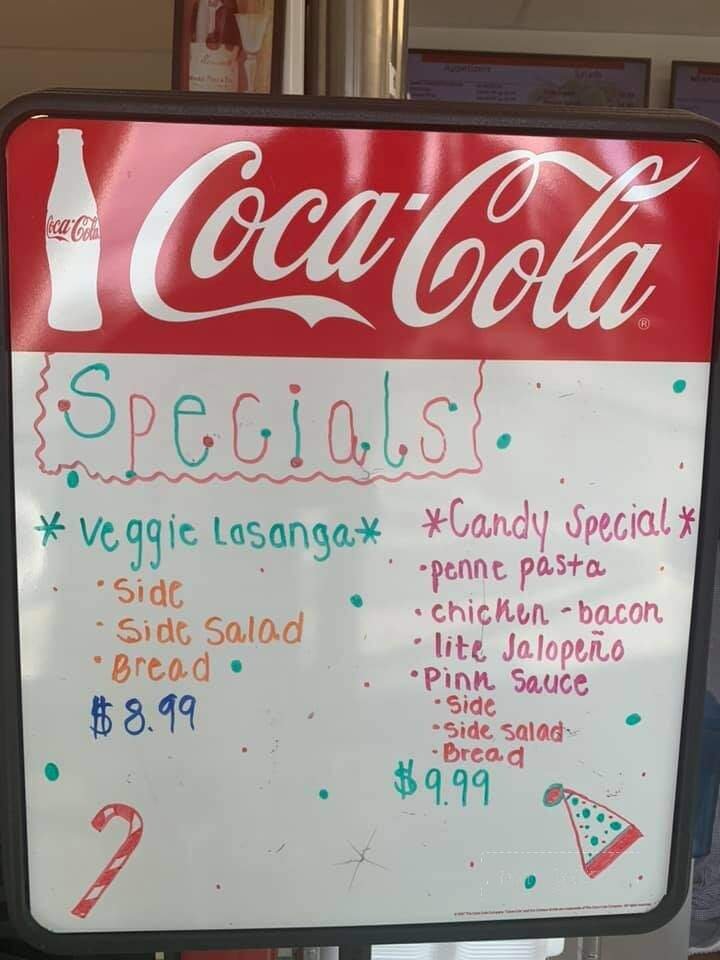 Coca-Cola
Coca-Cola®
Specials
* Veggie Lasanga *
• Side
• Side Salad
• Bread
$8.99
*Candy Special*
• penne pasta
• chicken - bacon
• lite Jalopeño
• Pink Sauce
• Side
• Side salad
• Bread
$9.99